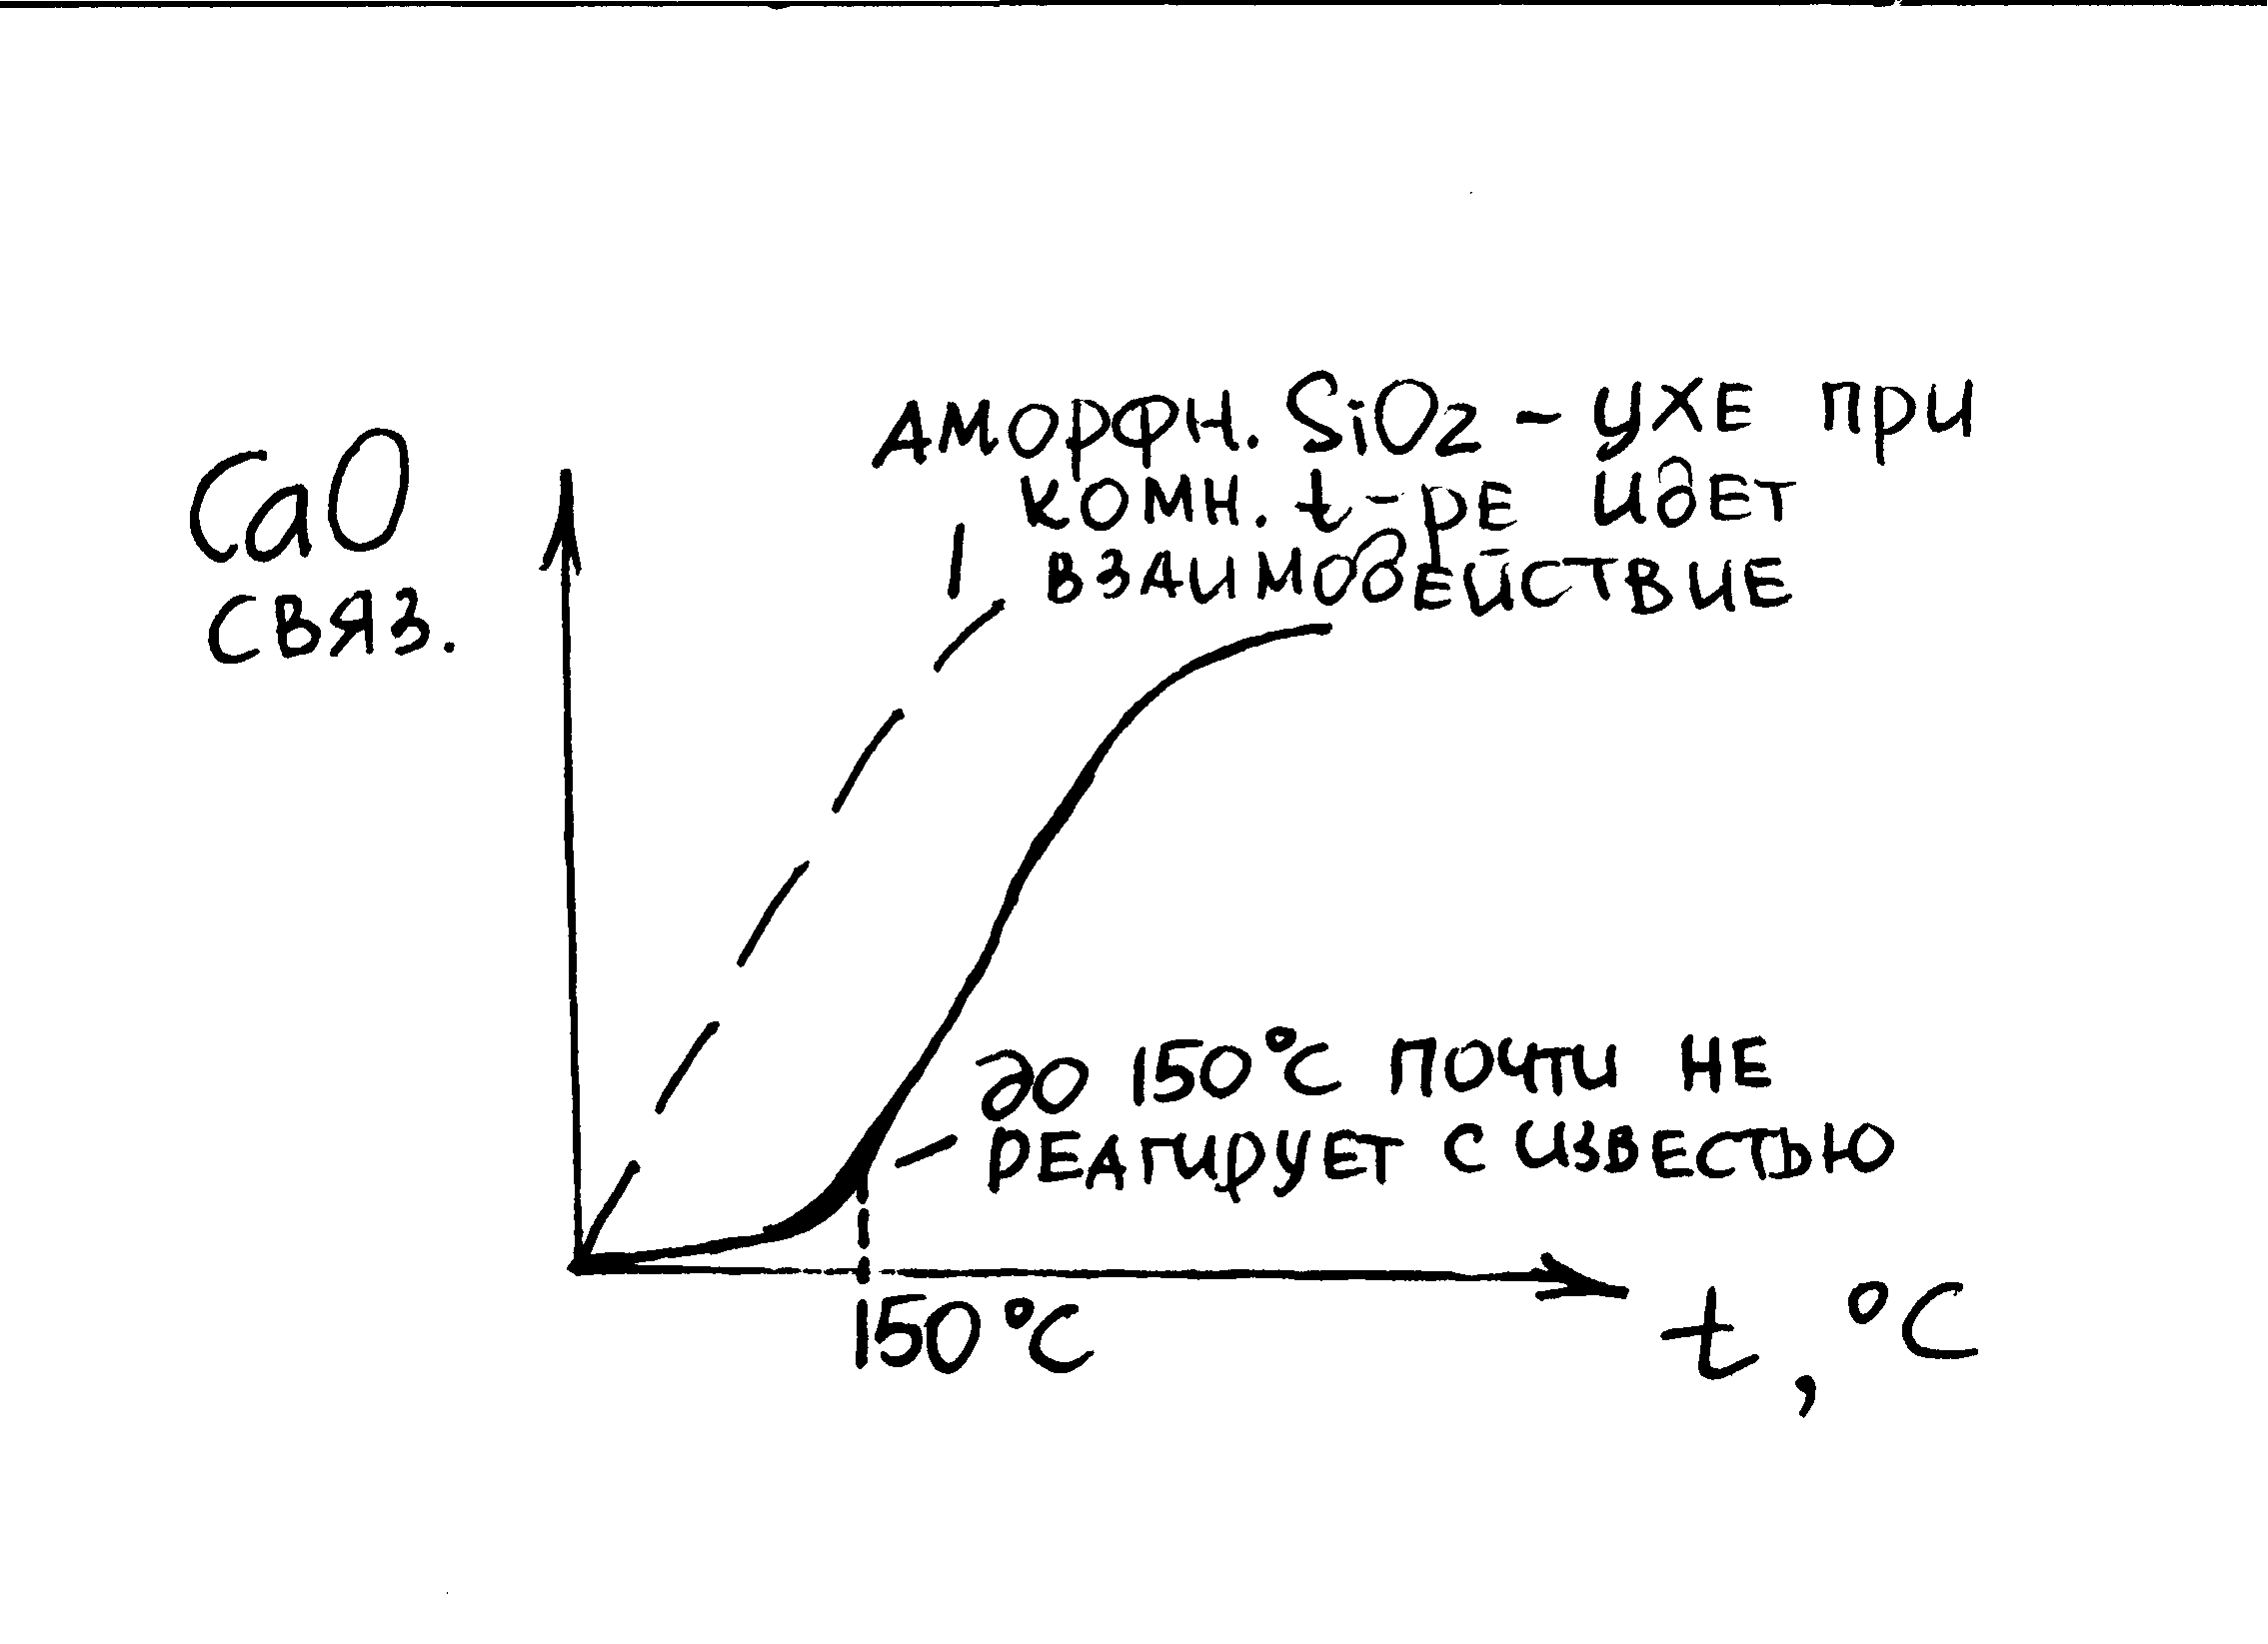 АМОРФН. SiO2 - УЖЕ ПРИ
КОМН. t-РЕ ИДЕТ
ВЗАИМОДЕЙСТВИЕ
CaO
СВЯЗ.
ДО 150°C ПОЧТИ НЕ
РЕАГИРУЕТ С ИЗВЕСТЬЮ
150°C
t, °C